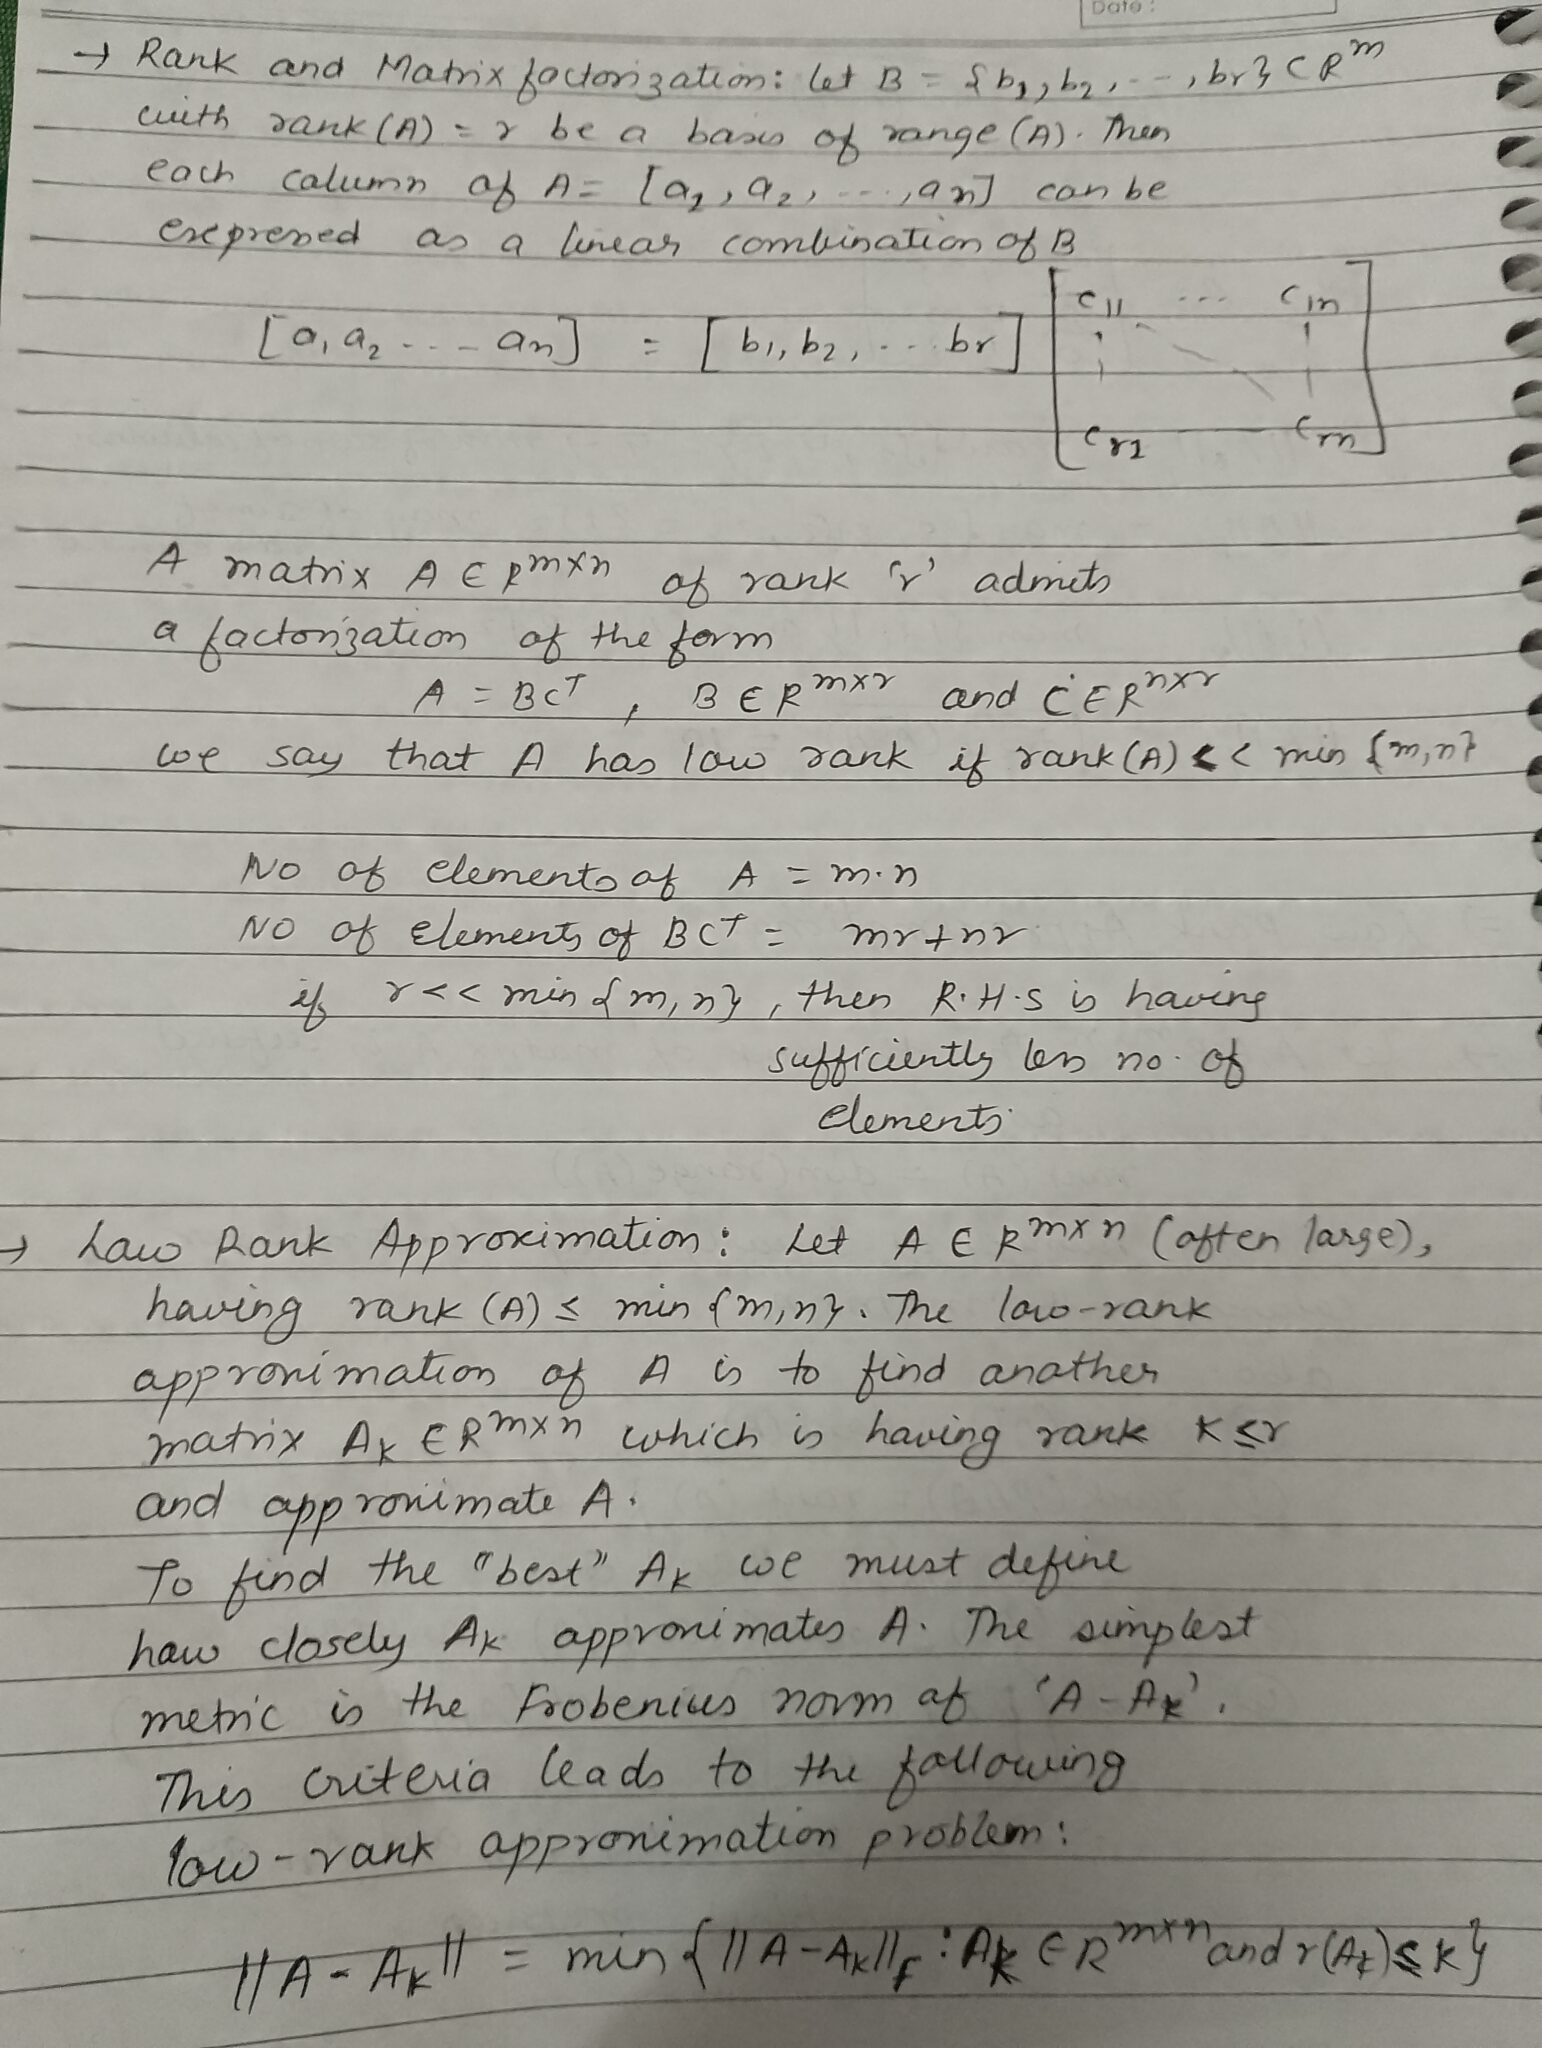 Date :
→ Rank and Matrix factorization: let B = {b1, b2, --, br} ⊂ R^m
with rank (A) = r be a basis of range (A). Then
each calumn of A = [a1, a2, ---, an] can be
expressed as a linear combination of B
[a1 a2 --- an] = [b1, b2, --- br] [c11 --- c1n
cr1 — crn]
A matrix A ∈ R^m×n of rank 'r' admits
a factorization of the form
A = BC^T , B ∈ R^m×r and C ∈ R^n×r
we say that A has low rank if rank (A) << min {m,n}
No of elements of A = m.n
No of Elements of BC^T = mr + nr
if r << min {m,n} , then R.H.S is having
sufficiently less no. of
elements
→ Low Rank Approximation: Let A ∈ R^m×n (often large),
having rank (A) ≤ min {m,n}. The low-rank
approximation of A is to find another
matrix Ak ∈ R^m×n which is having rank K ≤ r
and approximate A.
To find the "best" Ak we must define
how closely Ak approximates A. The simplest
metric is the Frobenius norm of 'A - Ak'.
This criteria leads to the following
low-rank approximation problem:
||A - Ak|| = min {||A - Ak||F : Ak ∈ R^m×n and r(Ak) ≤ k}